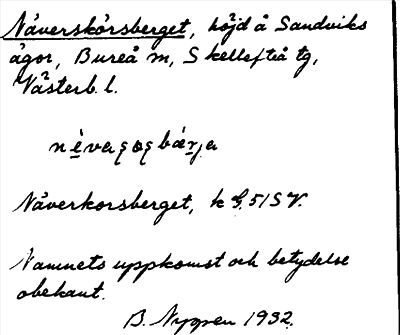 Näverskorsberget, höjd å Sandviks
ägor, Bureå sn, Skellefteå tg,
Västerb. l.
Näverkorsberget, k bl. 51 SV.
Namnets uppkomst och betydelse
obekant.
B. Nygren 1932.